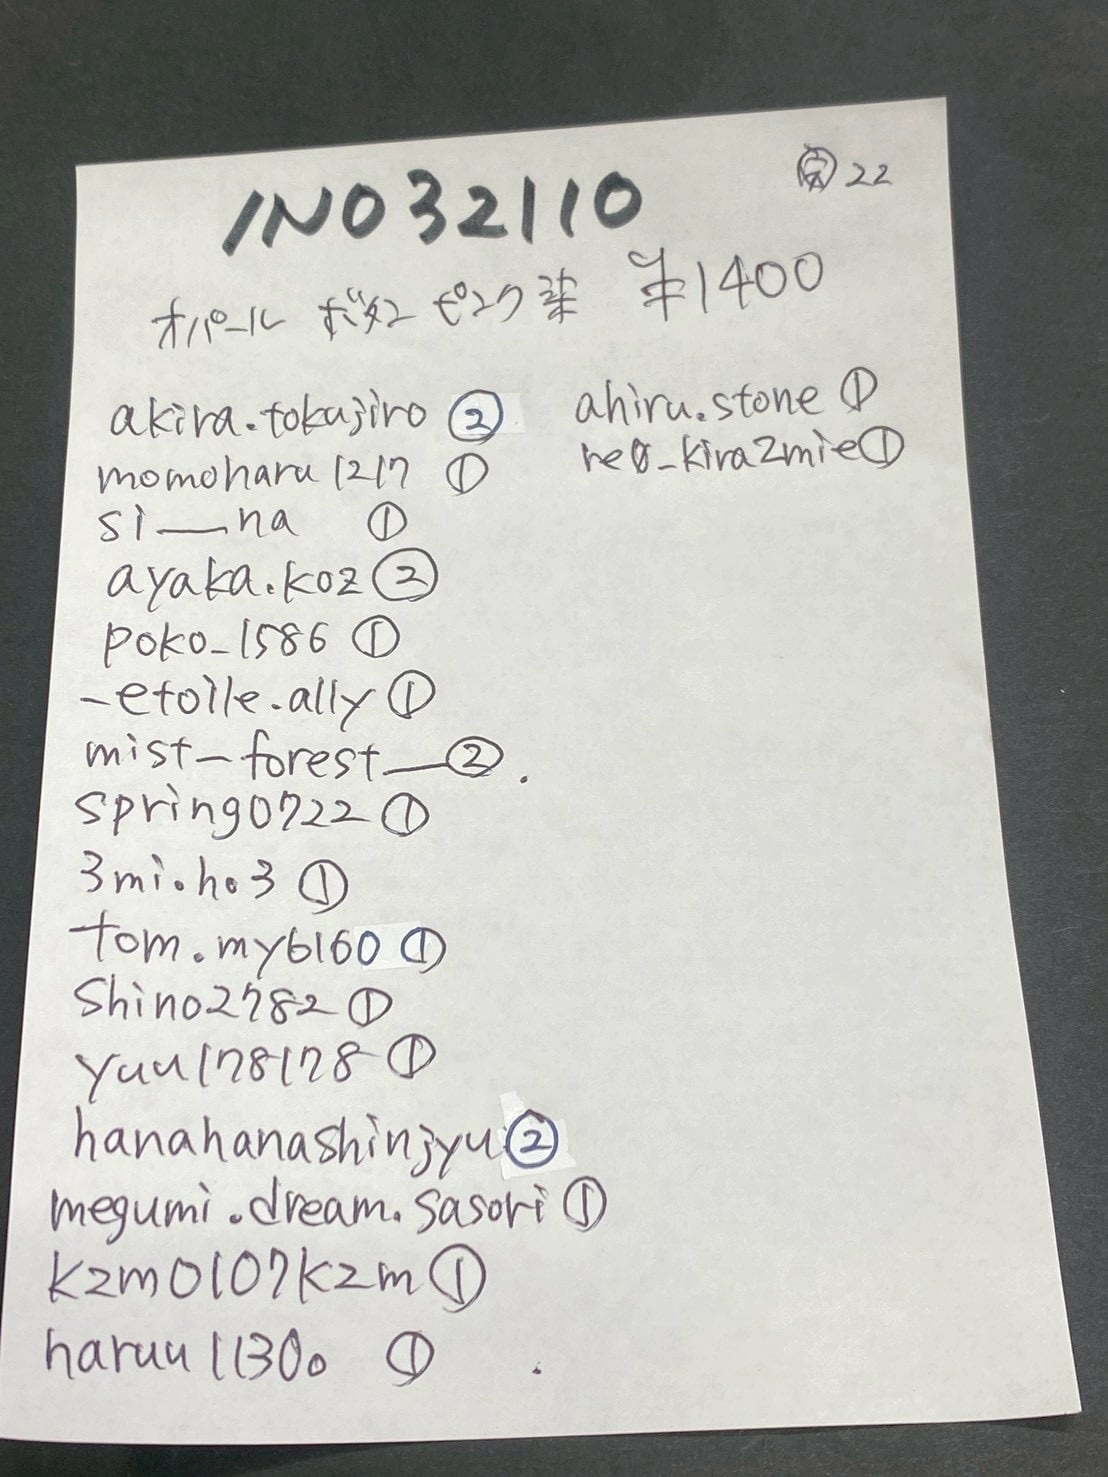 ㊡22
INO32110
オパール ボタン ピンク染 ¥1400
akira.tokujiro ②
momoharu1217 ①
si___na ①
ayaka.koz ②
poko_1586 ①
_etoile.ally ①
mist_forest__ ②
spring0722 ①
3mi.h.3 ①
tom.my6160 ①
shino2782 ①
yuu178178 ①
hanahanashinjyu ②
megumi.dream.sasori ①
kzm0107kzm ①
haruu1130。 ①
ahiru.stone ①
ne0_kira2mie ①